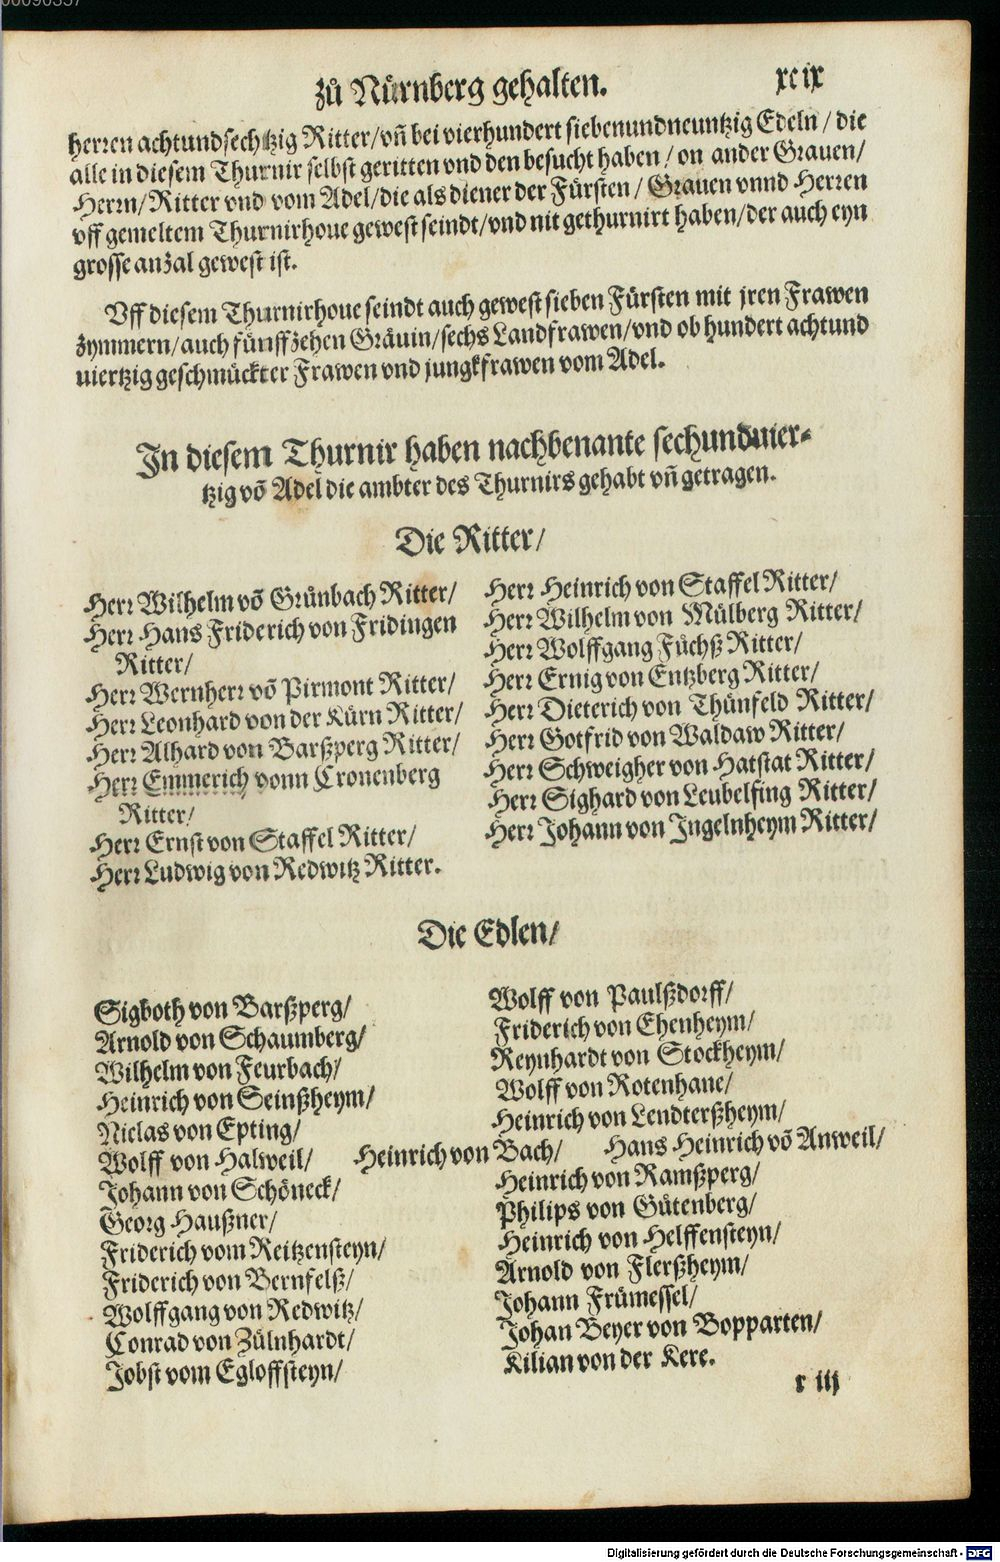 zů Nürnberg gehalten. xcix
herren achtundsechtzig Ritter/vñ bei vierhundert siebenundneuntzig Edeln/die
alle in diesem Thurnir selbst geritten vnd den besucht haben/on ander Grauen/
Herrn/Ritter vnd vom Adel/die als diener der Fürsten/Grauen vnnd Herren
vff gemeltem Thurnirhoue gewest seindt/vnd nit gethurnirt haben/der auch eyn
grosse anzal gewest ist.
Vff diesem Thurnirhoue seindt auch gewest sieben Fürsten mit jren Frawen
zymmern/auch fünffzehen Gräuin/sechs Landfrawen/vnd ob hundert achtund
uiertzig geschmückter Frawen vnd jungkfrawen vom Adel.
In diesem Thurnir haben nachbenante sechunduier⸗
tzig võ Adel die ambter des Thurnirs gehabt vñ getragen.
Die Ritter/
Herr Wilhelm võ Grünbach Ritter/
Herr Hans Friderich von Fridingen
Ritter/
Herr Wernherr võ Pirmont Ritter/
Herr Leonhard von der Kürn Ritter/
Herr Alhard von Barßperg Ritter/
Herr Emmerich vonn Cronenberg
Ritter/
Herr Ernst von Staffel Ritter/
Herr Ludwig von Redwitz Ritter.
Herr Heinrich von Staffel Ritter/
Herr Wilhelm von Mülberg Ritter/
Herr Wolffgang Füchß Ritter/
Herr Ernig von Entzberg Ritter/
Herr Dieterich von Thünfeld Ritter/
Herr Gotfrid von Waldaw Ritter/
Herr Schweigher von Hatstat Ritter/
Herr Sighard von Leubelfing Ritter/
Herr Johann von Ingelnheym Ritter/
Die Edlen/
Sigboth von Barßperg/
Arnold von Schaumberg/
Wilhelm von Feurbach/
Heinrich von Seinßheym/
Niclas von Epting/
Wolff von Halweil/ Heinrich von Bach/ Hans Heinrich võ Anweil/
Johann von Schöneck/
Georg Haußner/
Friderich vom Reitzensteyn/
Friderich von Bernfelß/
Wolffgang von Redwitz/
Conrad von Zülnhardt/
Jobst vom Egloffsteyn/
Wolff von Paulßdorff/
Friderich von Ehenheym/
Reynhardt von Stockheym/
Wolff von Rotenhane/
Heinrich von Lendterßheym/
Heinrich von Ramßperg/
Philips von Gütenberg/
Heinrich von Helffensteyn/
Arnold von Flerßheym/
Johann Frümessel/
Johan Beyer von Bopparten/
Kilian von der Kere.
r iij
Digitalisierung gefördert durch die Deutsche Forschungsgemeinschaft - DFG